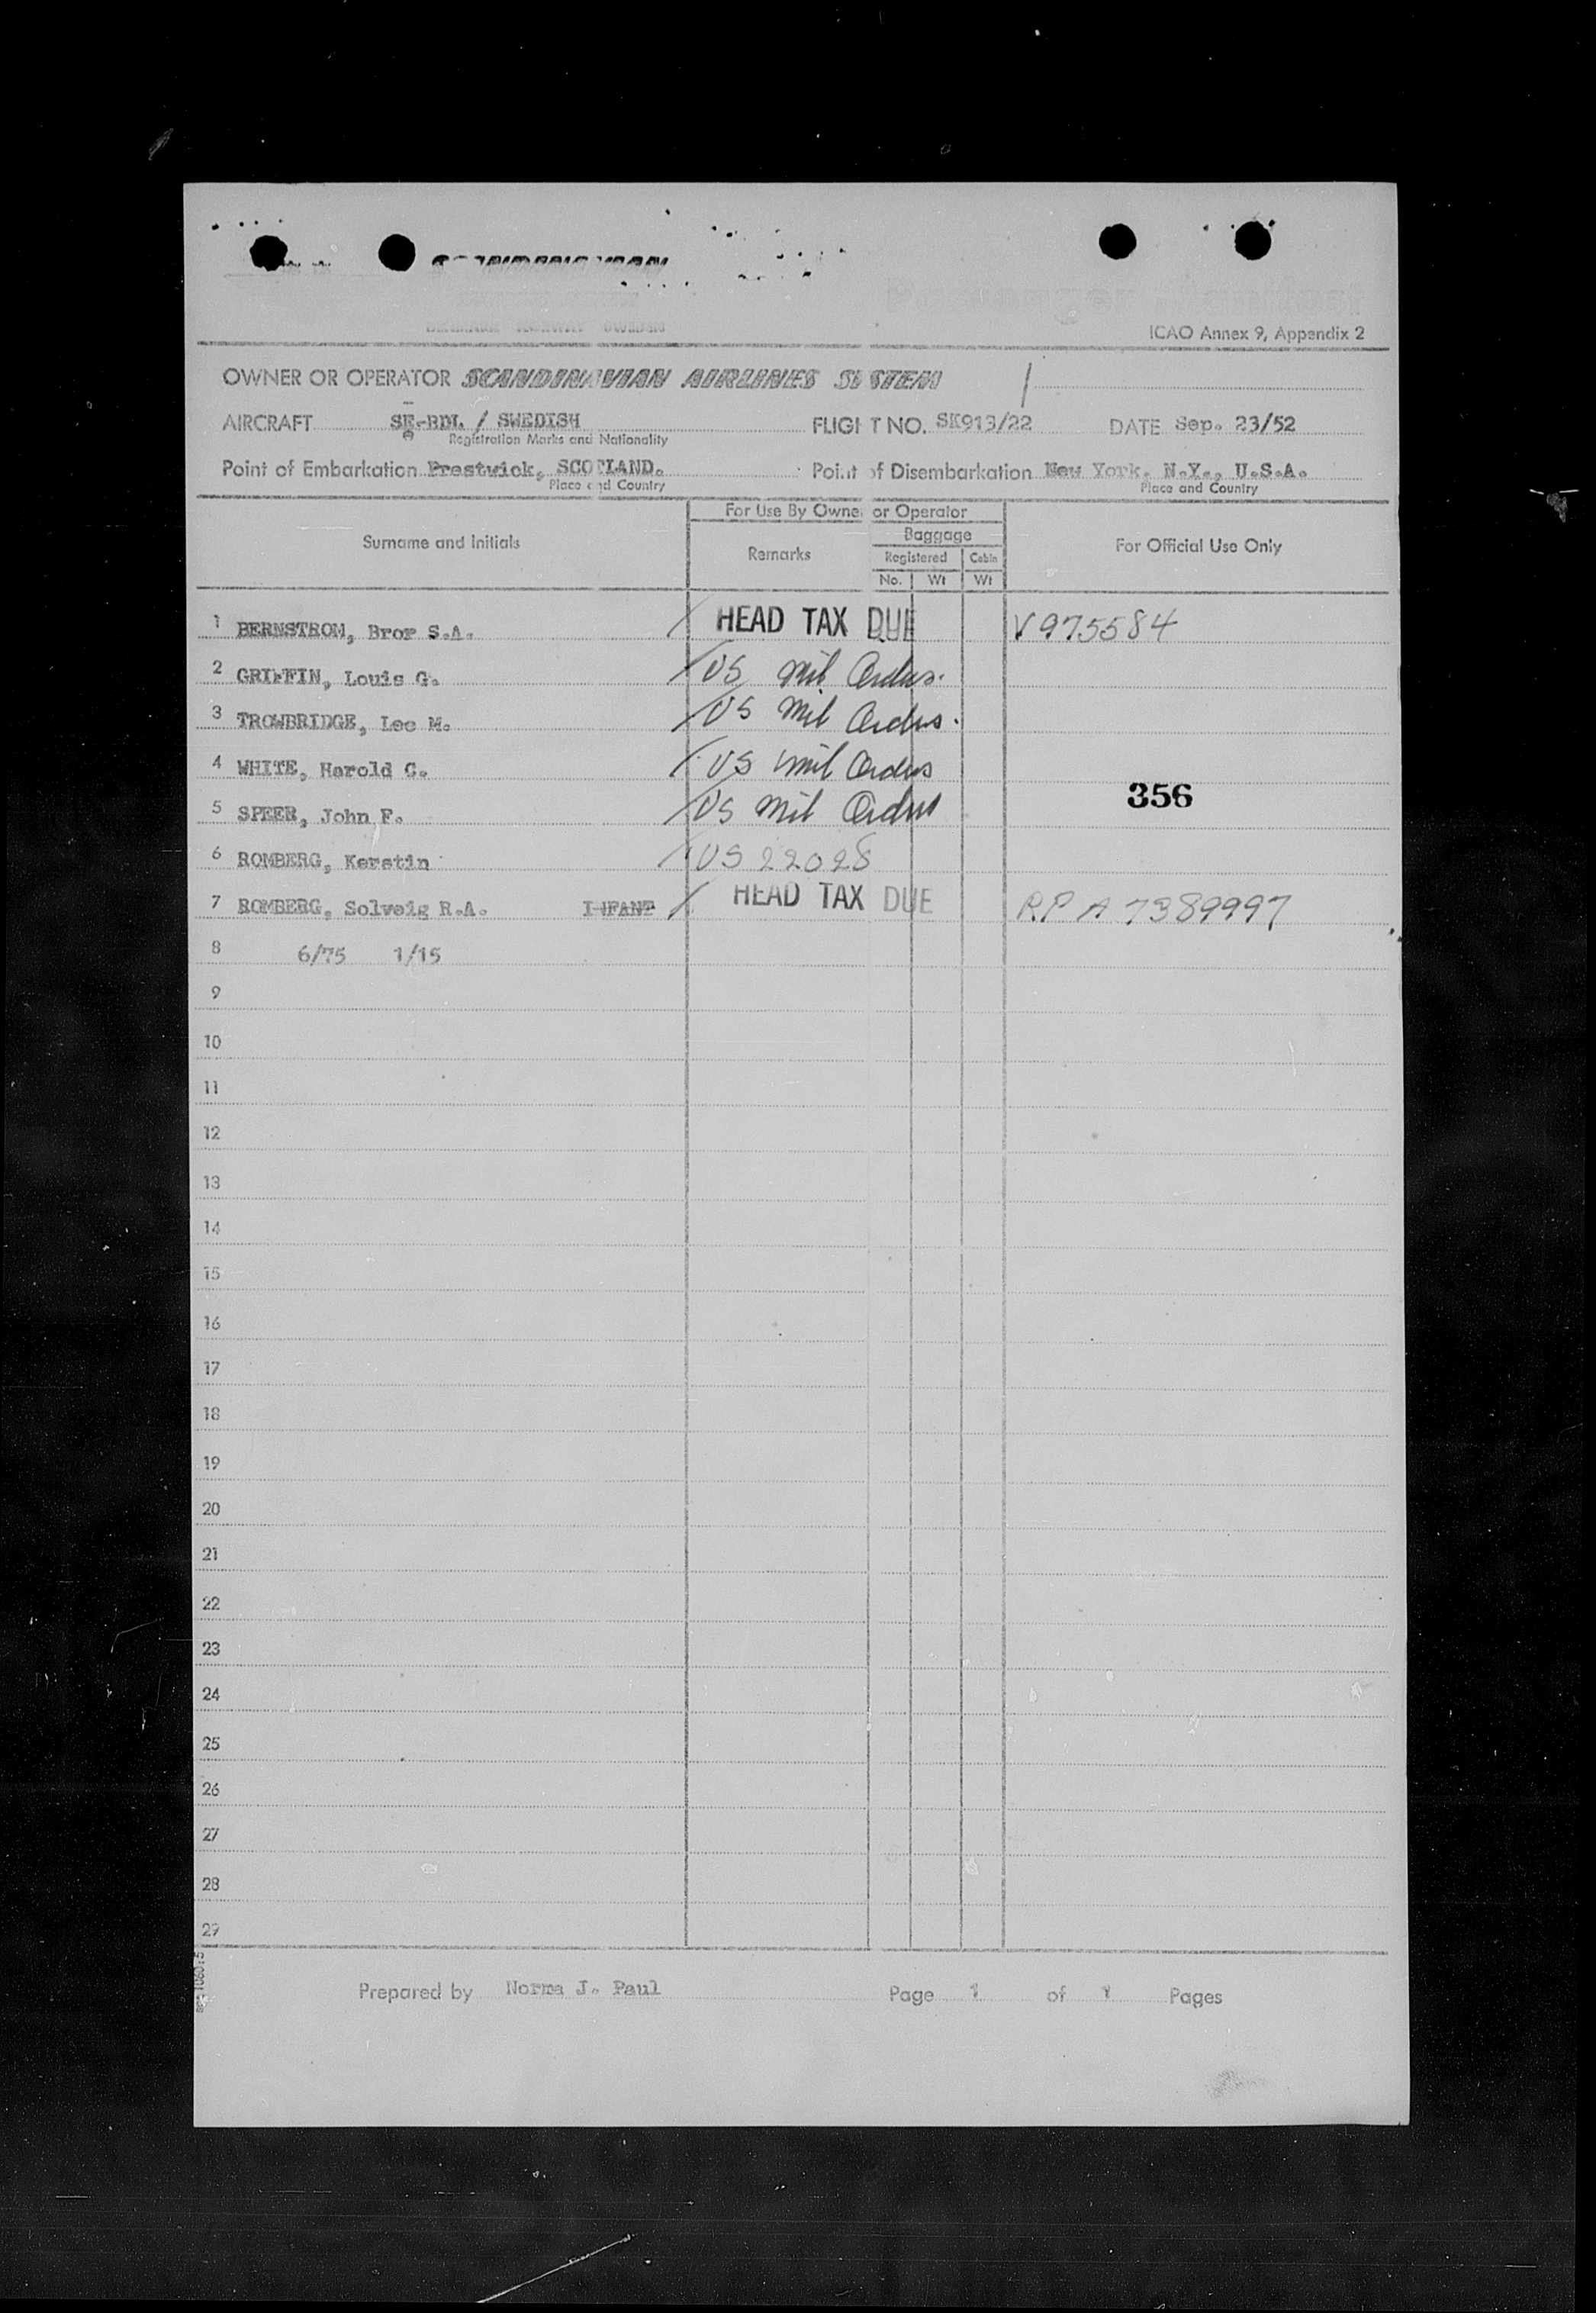 SCANDINAVIAN
DENMARK NORWAY SWEDEN
ICAO Annex 9, Appendix 2
OWNER OR OPERATOR SCANDINAVIAN AIRLINES SYSTEM
AIRCRAFT SE-BDL / SWEDISH FLIGHT NO. SK913/22 DATE Sep. 23/52
Registration Marks and Nationality
Point of Embarkation Prestwick, SCOTLAND. Point of Disembarkation New York. N.Y., U.S.A.
Place and Country Place and Country
For Use By Owner or Operator
Surname and Initials Remarks Baggage For Official Use Only
Registered Cabin
No. Wt Wt
1 BERNSTROM, Bror S.A. / HEAD TAX DUE V975584
2 GRIFFIN, Louis G. / US Mil Orders.
3 TROWBRIDGE, Lee M. / US Mil Orders.
4 WHITE, Harold G. / US Mil Orders
356
5 SPEER, John F. / US Mil Orders
6 ROMBERG, Kerstin / US 22028
7 ROMBERG, Solveig R.A. INFANT / HEAD TAX DUE RP A 7389997
8 6/75 1/15
9
10
11
12
13
14
15
16
17
18
19
20
21
22
23
24
25
26
27
28
29
Prepared by Norma J. Paul Page 1 of 1 Pages